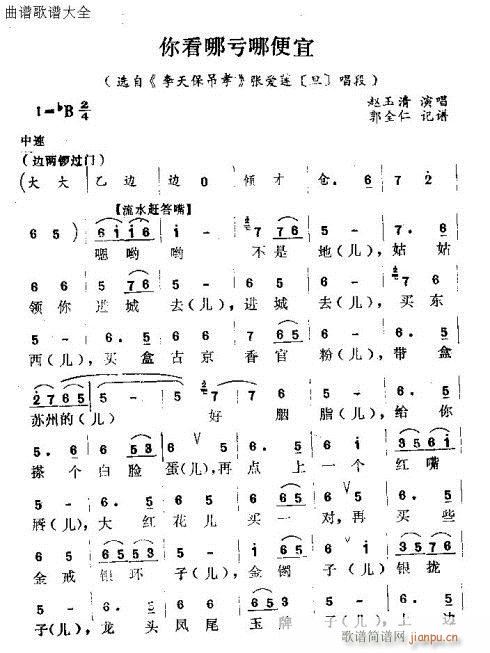 曲谱歌谱大全
你看哪亏哪便宜
(选自《李天保吊孝》张爱莲〔旦〕唱段)
1=♭B 2/4
赵玉清 演唱
郭全仁 记谱
中速
(边两锣过门)
(大大 乙边 边0 倾才 仓. 6 7 2
【流水赶答嘴】
6 5) 6 i i 6 5 - 7 7 6 7 6
嗯哟哟 不是地(儿),姑姑
6. 5 5 7 6 5 - 6. 5 7 6
领你进城去(儿),进城去(儿),买东
5 - 6. 5 6 6 6 5 5 - 6 6
西(儿),买盒古京香官粉(儿),带盒
2 7 6 5 5 - 5 7 6 5 - 6 5
苏州的(儿) 好胭脂(儿),给你
5. 6 6 5 3 5 6 6. 5 3 6 5 6 1
搽个白脸蛋(儿),再点上一个红嘴
5 - 6. 5 6 6 6 - 5 6 6 5
唇(儿),大红花儿买一对,再买些
6. 5 6 5 5 3 5 - 6 6 3 5 7 6
金戒银环子(儿),金镯子(儿)银拢
5 - 6. 5 6 6 6. 5 5 - 6 5
子(儿),龙头凤尾玉牌子(儿),上边
歌谱简谱网
jianpu.cn